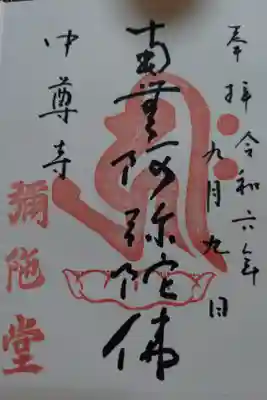 奉拝 令和六年
九月九日
南無阿弥陀佛
中尊寺
彌陀堂